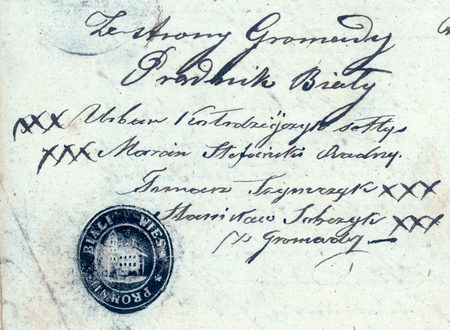 Ze strony Gromady
Prądnik Biały
XXX Urban sołtys
XXX Marcin Stefański Radny.
Tomasz Szymczyk XXX
Stanisław Sobczyk XXX
z Gromady
BIALI WIES